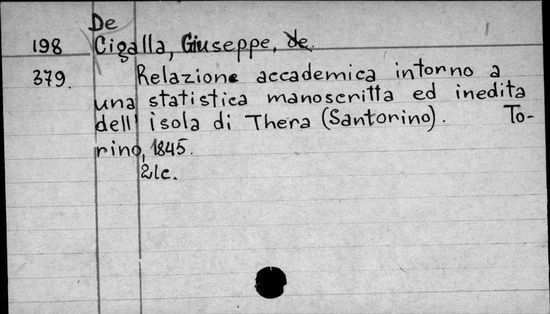 De
198 Cigalla, Giuseppe, de.
379. Relazione accademica intorno a
una statistica manoscritta ed inedita
dell' isola di Thera (Santorino). To-
rino, 1845.